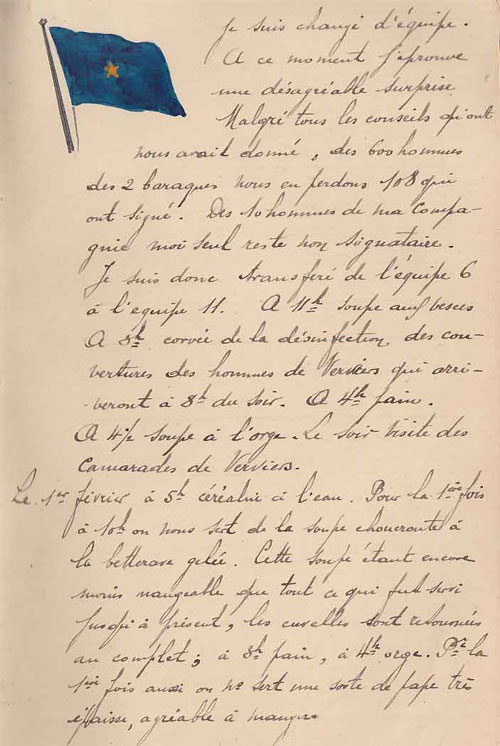 Je suis changé d'équipe.
A ce moment j'éprouve
une désagréable surprise
Malgré tous les conseils qu'on
nous avait donné, des 600 hommes
des 2 baraques nous en perdons 108 qui
ont signé. Des 10 hommes de ma compa-
gnie moi seul reste non signataire.
Je suis donc transféré de l'équipe 6
à l'équipe 11. A 11h soupe aux vesces
A 3h corvée de la désinfection, des cou-
vertures des hommes de Verviers qui arri-
-veront à 8h du soir. A 4h pain.
A 4½ soupe à l'orge. Le soir visite des
Camarades de Verviers.
Le 1er février à 5h céréaline à l'eau. Pour la 1ère fois
à 10h on nous sert de la soupe choucroute à
la betterave gelée. Cette soupe étant encore
moins mangeable que tout ce qui fut servi
jusqu'à présent, les cuvelles sont retournées
au complet; à 3h pain, à 4h orge. Pr la
1ère fois aussi on ns sert une sorte de pape très
épaisse, agréable à manger